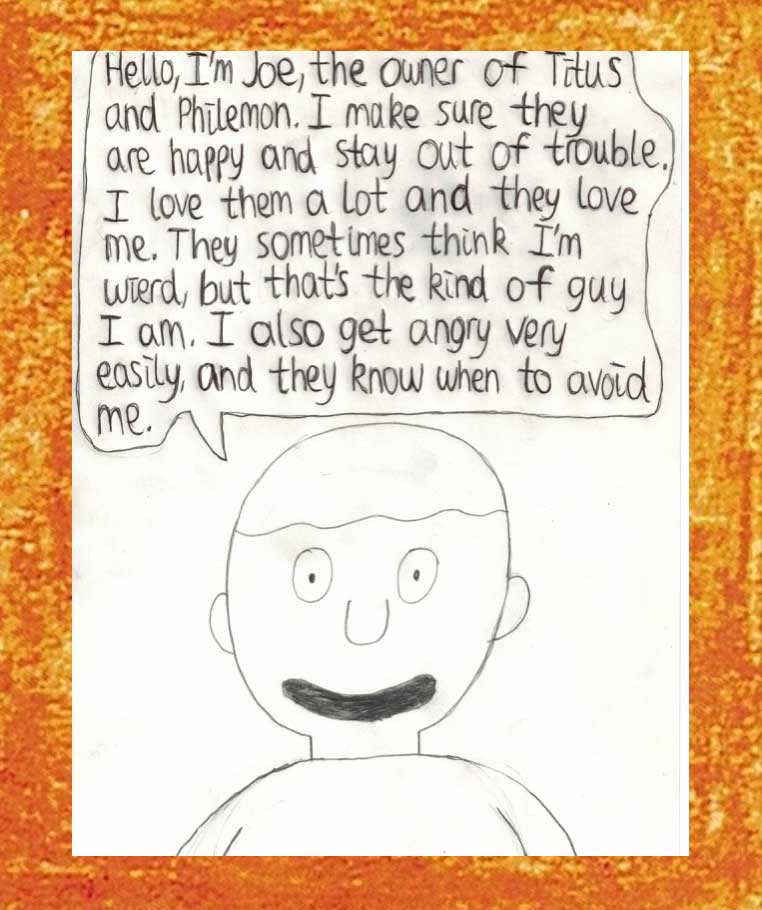 Hello, I'm Joe, the owner of Titus
and Philemon. I make sure they
are happy and stay out of trouble.
I love them a lot and they love
me. They sometimes think I'm
wierd, but that's the kind of guy
I am. I also get angry very
easily, and they know when to avoid
me.